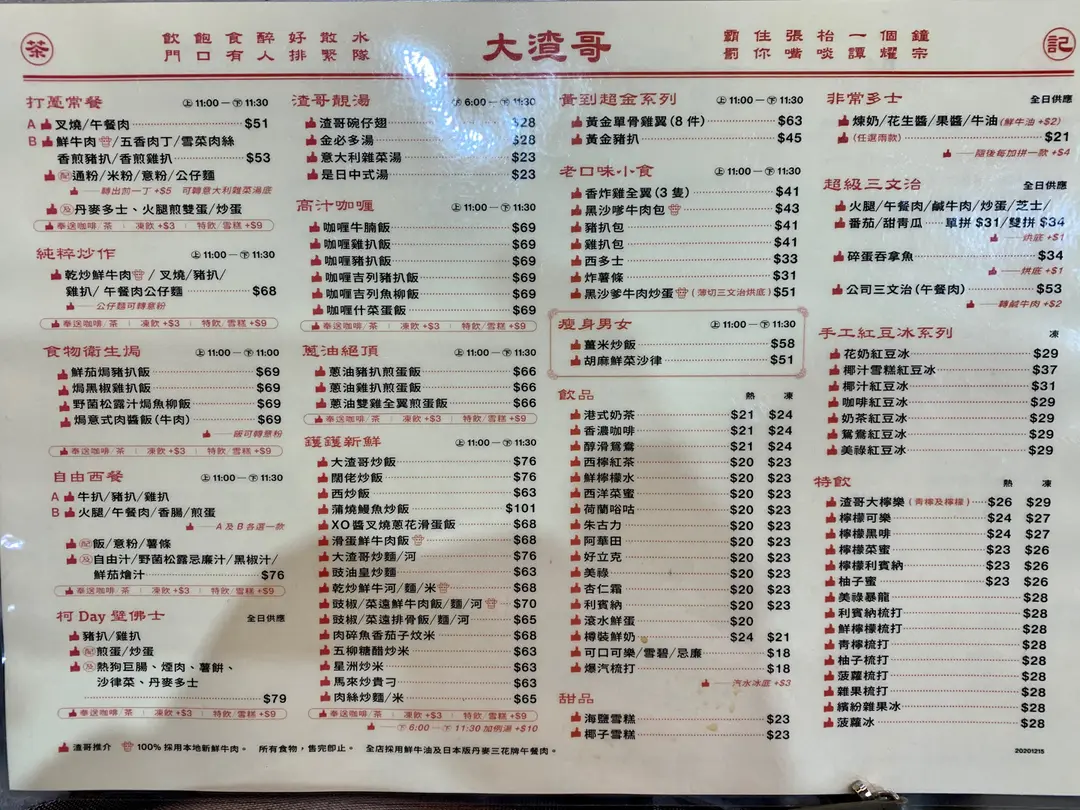 茶
飲飽食醉好散水
門口有人排緊隊
大渣哥
霸住張枱一個鐘
罰你嘴啖譚耀宗
記
打躉常餐 上 11:00 — 下 11:30
A 叉燒/午餐肉 $51
B 鮮牛肉/五香肉丁/雪菜肉絲
香煎豬扒/香煎雞扒 $53
配 通粉/米粉/意粉/公仔麵
轉出前一丁 +$5 可轉意大利雜菜湯底
及 丹麥多士、火腿煎雙蛋/炒蛋
奉送咖啡/茶 | 凍飲 +$3 | 特飲/雪糕 +$9
純粹炒作 上 11:00 — 下 11:30
乾炒鮮牛肉 / 叉燒/豬扒/
雞扒/ 午餐肉公仔麵 $68
公仔麵可轉意粉
奉送咖啡/茶 | 凍飲 +$3 | 特飲/雪糕 +$9
食物衛生焗 上 11:00 — 下 11:00
鮮茄焗豬扒飯 $69
焗黑椒雞扒飯 $69
野菌松露汁焗魚柳飯 $69
焗意式肉醬飯(牛肉) $69
飯可轉意粉
奉送咖啡/茶 | 凍飲 +$3 | 特飲/雪糕 +$9
自由西餐 上 11:00 — 下 11:30
A 牛扒/豬扒/雞扒
B 火腿/午餐肉/香腸/煎蛋
A 及 B 各選一款
配 飯/意粉/薯條
及 自由汁/野菌松露忌廉汁/黑椒汁/
鮮茄燴汁 $76
奉送咖啡/茶 | 凍飲 +$3 | 特飲/雪糕 +$9
柯 Day 壁佛士 全日供應
豬扒/雞扒
配 煎蛋/炒蛋
及 熱狗巨腸、煙肉、薯餅、
沙律菜、丹麥多士
$79
奉送咖啡/茶 | 凍飲 +$3 | 特飲/雪糕 +$9
渣哥靚湯 6:00 — 下 11:30
渣哥碗仔翅 $28
金必多湯 $28
意大利雜菜湯 $23
是日中式湯 $23
高汁咖喱 上 11:00 — 下 11:30
咖喱牛腩飯 $69
咖喱雞扒飯 $69
咖喱豬扒飯 $69
咖喱吉列豬扒飯 $69
咖喱吉列魚柳飯 $69
咖喱什菜蛋飯 $69
奉送咖啡/茶 | 凍飲 +$3 | 特飲/雪糕 +$9
蔥油絕頂 上 11:00 — 下 11:30
蔥油豬扒煎蛋飯 $66
蔥油雞扒煎蛋飯 $66
蔥油雙雞全翼煎蛋飯 $66
奉送咖啡/茶 | 凍飲 +$3 | 特飲/雪糕 +$9
鑊鑊新鮮 上 11:00 — 下 11:30
大渣哥炒飯 $76
闊佬炒飯 $76
西炒飯 $63
蒲燒鰻魚炒飯 $101
XO醬叉燒蔥花滑蛋飯 $68
滑蛋鮮牛肉飯 $68
大渣哥炒麵/河 $76
豉油皇炒麵 $63
乾炒鮮牛河/麵/米 $68
豉椒/菜遠鮮牛肉飯/麵/河 $70
豉椒/菜遠排骨飯/麵/河 $65
肉碎魚香茄子炆米 $68
五柳糖醋炒米 $63
星洲炒米 $63
馬來炒貴刁 $63
肉絲炒麵/米 $65
奉送咖啡/茶 | 凍飲 +$3 | 特飲/雪糕 +$9
下 6:00 — 下 11:30 加例湯 +$10
黃到超金系列 上 11:00 — 下 11:30
黃金單骨雞翼(8 件) $63
黃金豬扒 $45
老口味小食 上 11:00 — 下 11:30
香炸雞全翼(3 隻) $41
黑沙嗲牛肉包 $43
豬扒包 $41
雞扒包 $41
西多士 $33
炸薯條 $31
黑沙爹牛肉炒蛋 (薄切三文治烘底) $51
瘦身男女 上 11:00 — 下 11:30
薑米炒飯 $58
胡麻鮮菜沙律 $51
飲品 熱 凍
港式奶茶 $21 $24
香濃咖啡 $21 $24
醇滑鴛鴦 $21 $24
西檸紅茶 $20 $23
鮮檸檬水 $20 $23
西洋菜蜜 $20 $23
荷蘭唂咕 $20 $23
朱古力 $20 $23
阿華田 $20 $23
好立克 $20 $23
美祿 $20 $23
杏仁霜 $20 $23
利賓納 $20 $23
滾水鮮蛋 $20
樽裝鮮奶 $24 $21
可口可樂/雪碧/忌廉 $18
爆汽梳打 $18
汽水冰底 +$3
甜品
海鹽雪糕 $23
椰子雪糕 $23
非常多士 全日供應
煉奶/花生醬/果醬/牛油(鮮牛油 +$2)
(任選兩款) $21
隨後每加拼一款 +$4
超級三文治 全日供應
火腿/午餐肉/鹹牛肉/炒蛋/芝士/
番茄/甜青瓜 單拼 $31/雙拼 $34
烘底 +$1
碎蛋吞拿魚 $34
烘底 +$1
公司三文治(午餐肉) $53
轉鹹牛肉 +$2
手工紅豆冰系列 凍
花奶紅豆冰 $29
椰汁雪糕紅豆冰 $37
椰汁紅豆冰 $31
咖啡紅豆冰 $29
奶茶紅豆冰 $29
鴛鴦紅豆冰 $29
美祿紅豆冰 $29
特飲 熱 凍
渣哥大檸樂(青檸及檸檬) $26 $29
檸檬可樂 $24 $27
檸檬黑啡 $24 $27
檸檬菜蜜 $23 $26
檸檬利賓納 $23 $26
柚子蜜 $23 $26
美祿暴龍 $28
利賓納梳打 $28
鮮檸檬梳打 $28
青檸梳打 $28
柚子梳打 $28
菠蘿梳打 $28
雜果梳打 $28
繽紛雜果冰 $28
菠蘿冰 $28
渣哥推介 100% 採用本地新鮮牛肉。 所有食物,售完即止。 全店採用鮮牛油及日本版丹麥三花牌午餐肉。
20201215